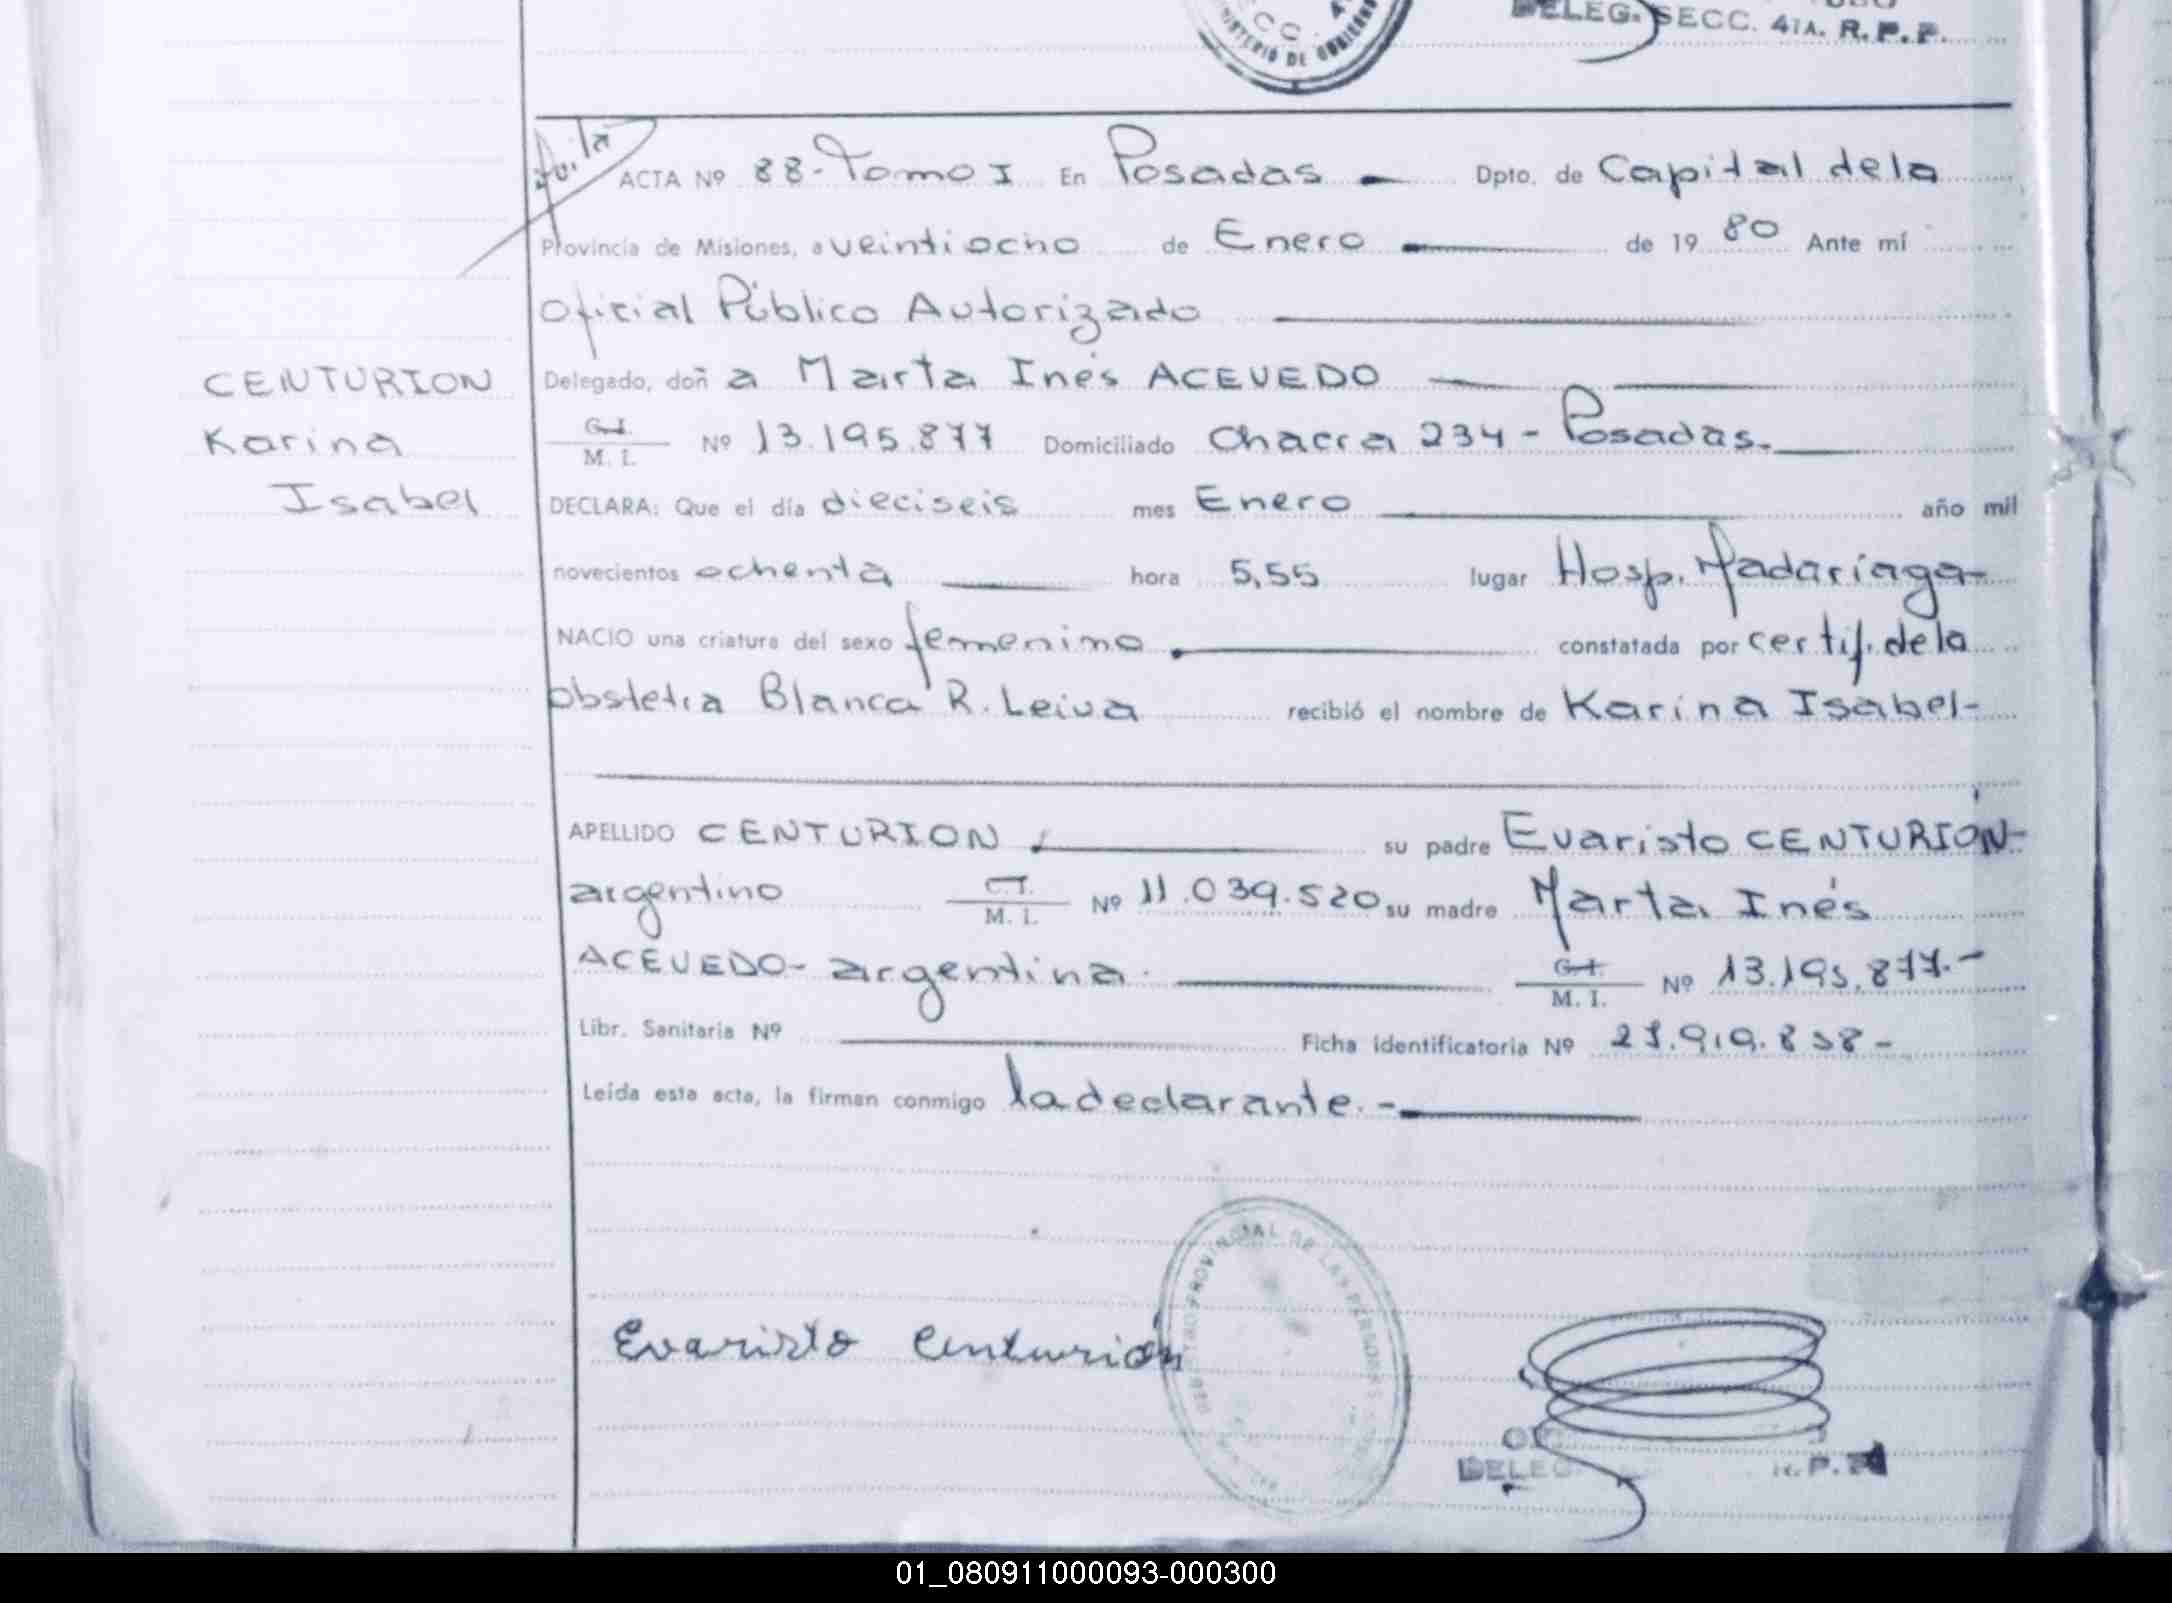 DELEG. SECC. 41A. R.P.P.
MINISTERIO DE GOBIERNO
ACTA Nº 88-Tomo I En Posadas - Dpto. de Capital de la
Provincia de Misiones, a veintiocho de Enero de 1980 Ante mí
Oficial Público Autorizado
CENTURION
Karina
Isabel
Delegado, doña Marta Inés ACEVEDO
C.I.
M. I. Nº 13.195.877 Domiciliado Chacra 234 - Posadas.
DECLARA: Que el día dieciseis mes Enero año mil
novecientos ochenta hora 5,55 lugar Hosp. Madariaga-
NACIO una criatura del sexo femenino constatada por certif. de la
obstetra Blanca R. Leiva recibió el nombre de Karina Isabel-
APELLIDO CENTURION su padre Evaristo CENTURIÓN-
argentino C.I.
M. I. Nº 11.039.520 su madre Marta Inés
ACEVEDO- argentina C.I.
M. I. Nº 13.195.877.-
Libr. Sanitaria Nº Ficha identificatoria Nº
Leída esta acta, la firman conmigo la declarante.-
REGISTRO PROVINCIAL DE LAS PERSONAS
Evaristo Centurión
DELEG. R.P.P.
01_080911000093-000300